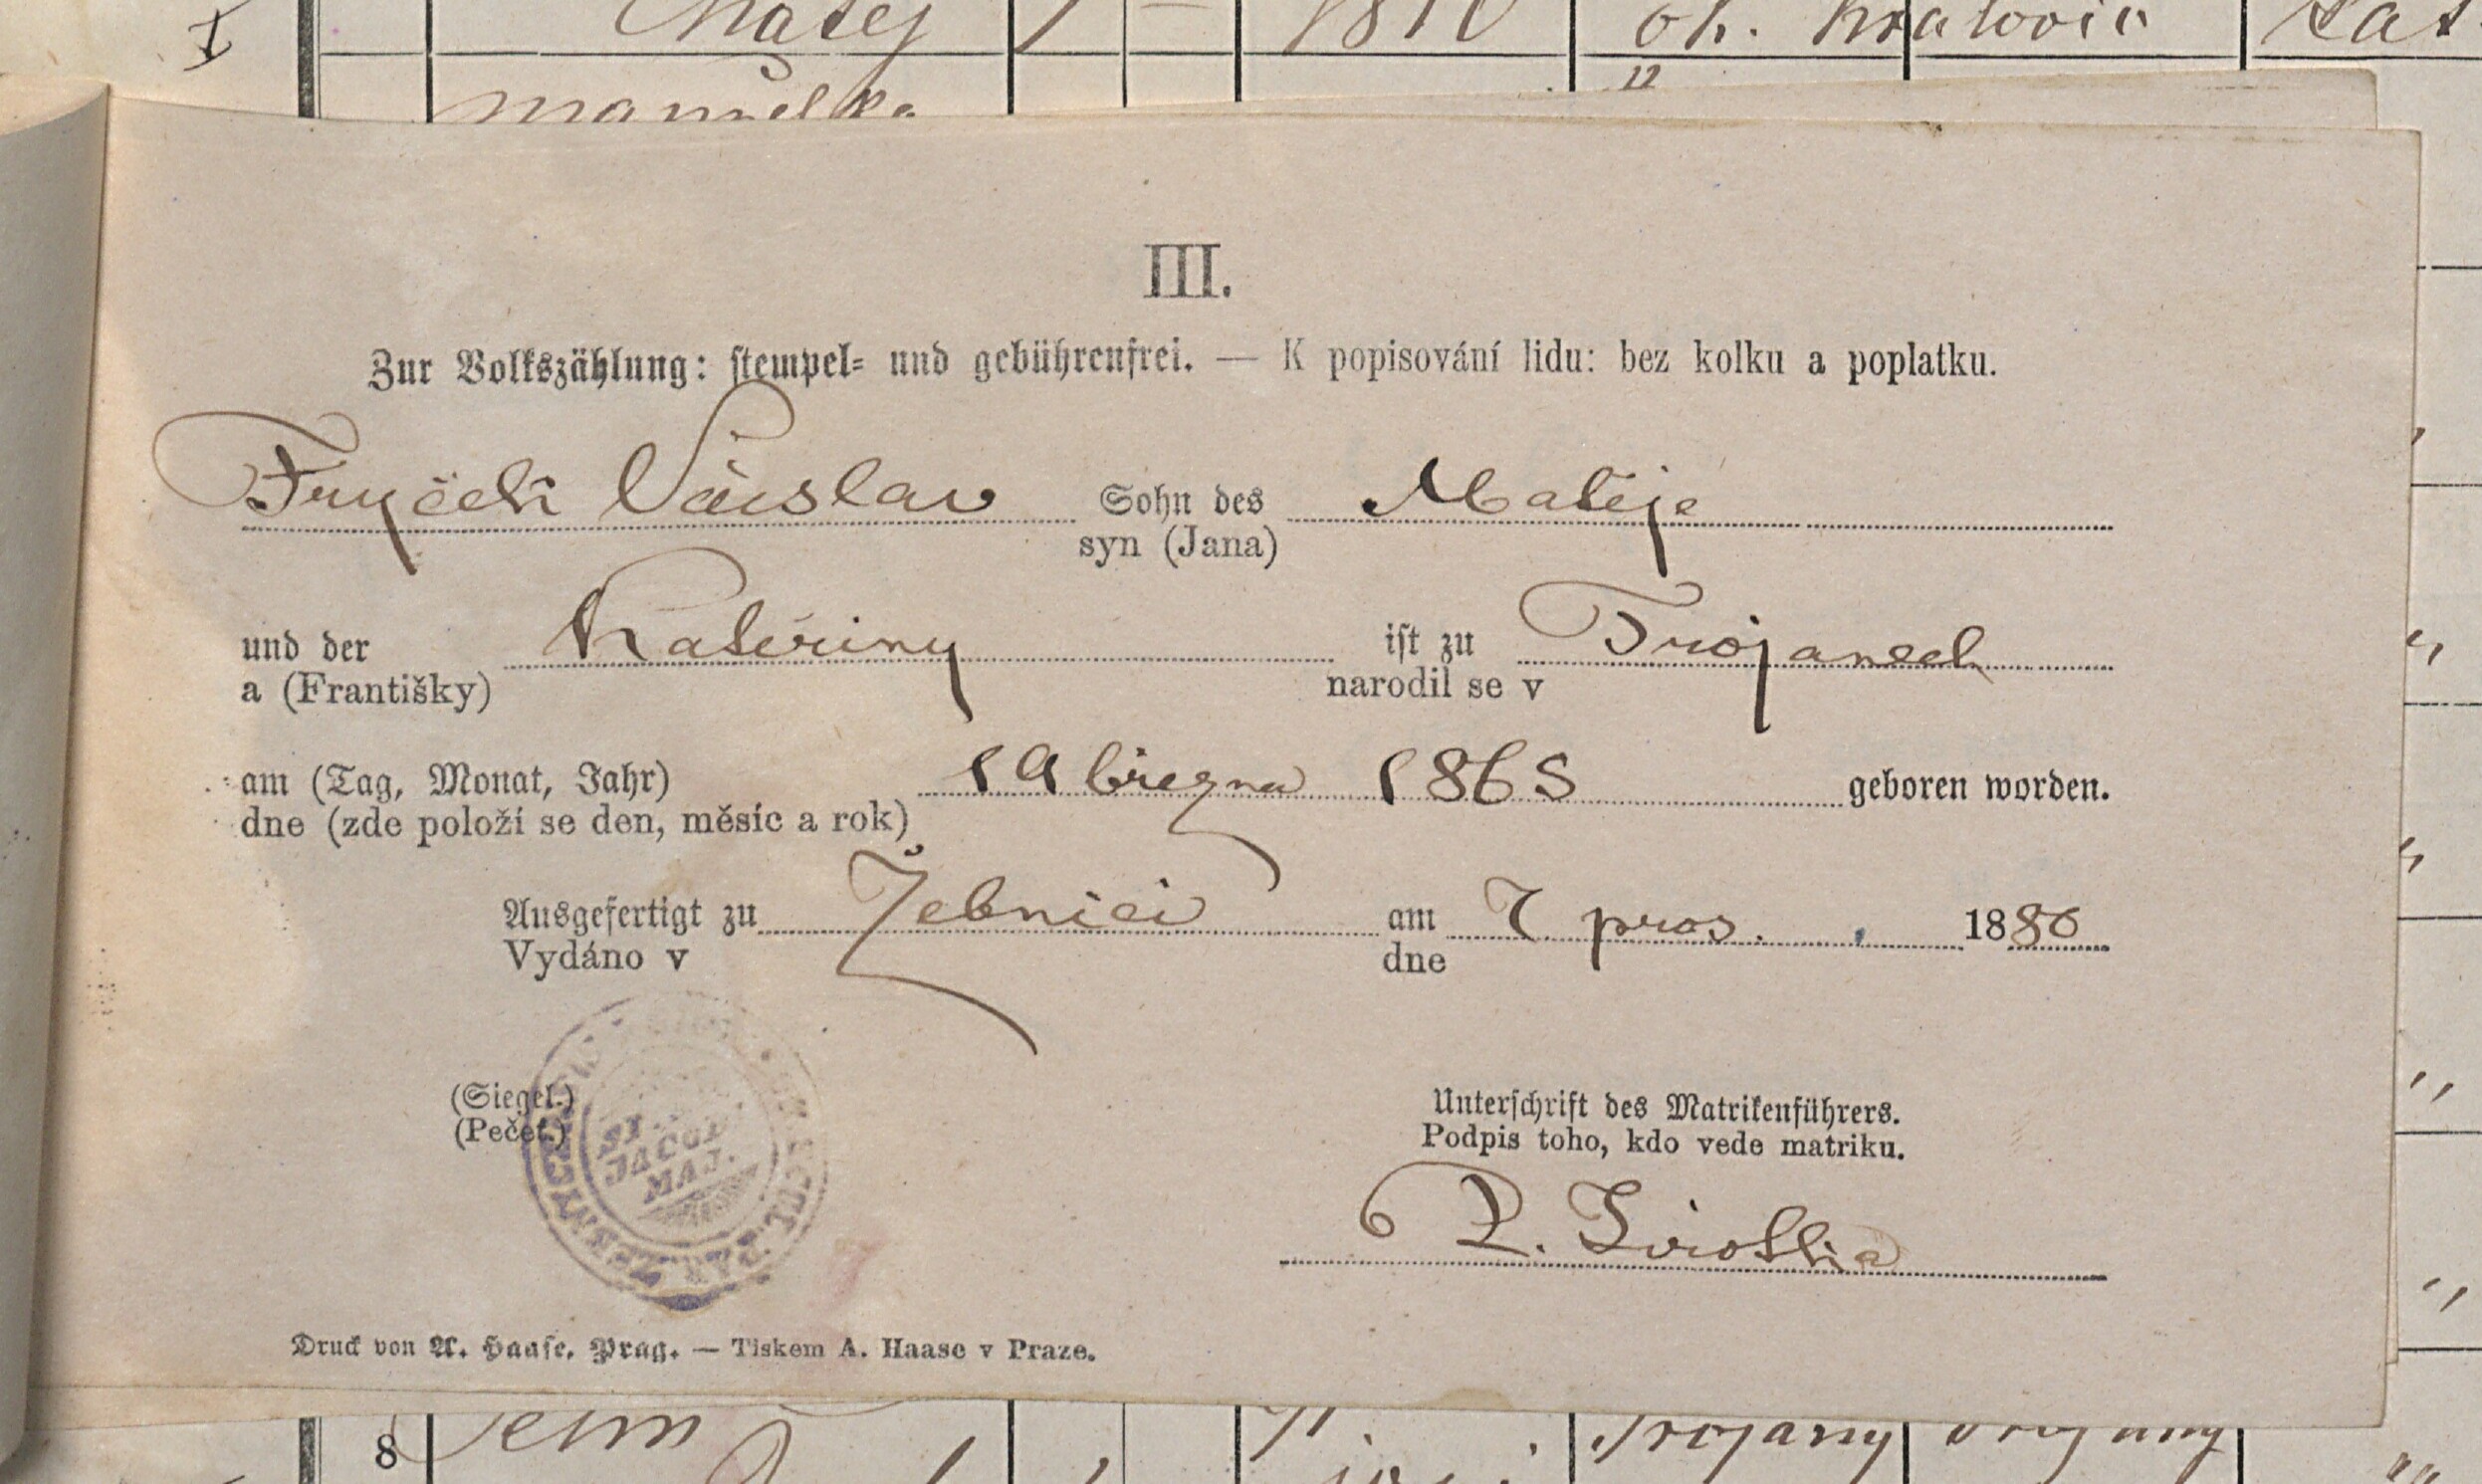 Matěj 1 — 1810 ok. Kralovic
manželka
III.
Zur Volkszählung: stempel- und gebührenfrei. — K popisování lidu: bez kolku a poplatku.
Fryček Václav Sohn des Matěje
syn (Jana)
und der Kateřiny ist zu Trojanech
a (Františky) narodil se v
am (Tag, Monat, Jahr) 19 března 1868 geboren worden.
dne (zde položí se den, měsíc a rok)
Ausgefertigt zu Žebnici am 7 pros. 1880
Vydáno v dne
(Siegel.)
(Pečeť.)
JACOB
MAJ.
Unterschrift des Matrikenführers.
Podpis toho, kdo vede matriku.
P.
Druck von A. Haase, Prag. — Tiskem A. Haase v Praze.
8 Trojany